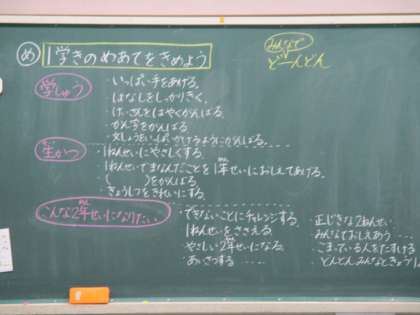 め 1学きのめあてをきめよう
みんなで
どーんどん
学しゅう
・いっぱい手をあげる。
・はなしをしっかりきく。
・けいさんをはやくがんばる。
・かん字をがんばる。
・文しょうをいっぱいかけるようにがんばる。
生かつ
・1ねんせいにやさしくする。
・1ねんせいでまなんだことを1年せいにおしえてあげる。
・( )をがんばる。
・きょうしつをきれいにする。
こんな2年せいになりたい
・できないことにチャレンジする。
・1ねんせいをささえる。
・やさしい2年せいになる。
・あいさつする
・正じきな2ねんせい。
・みんなでおしえあう
・こまっている人をたすける
・どんどんみんなときょう